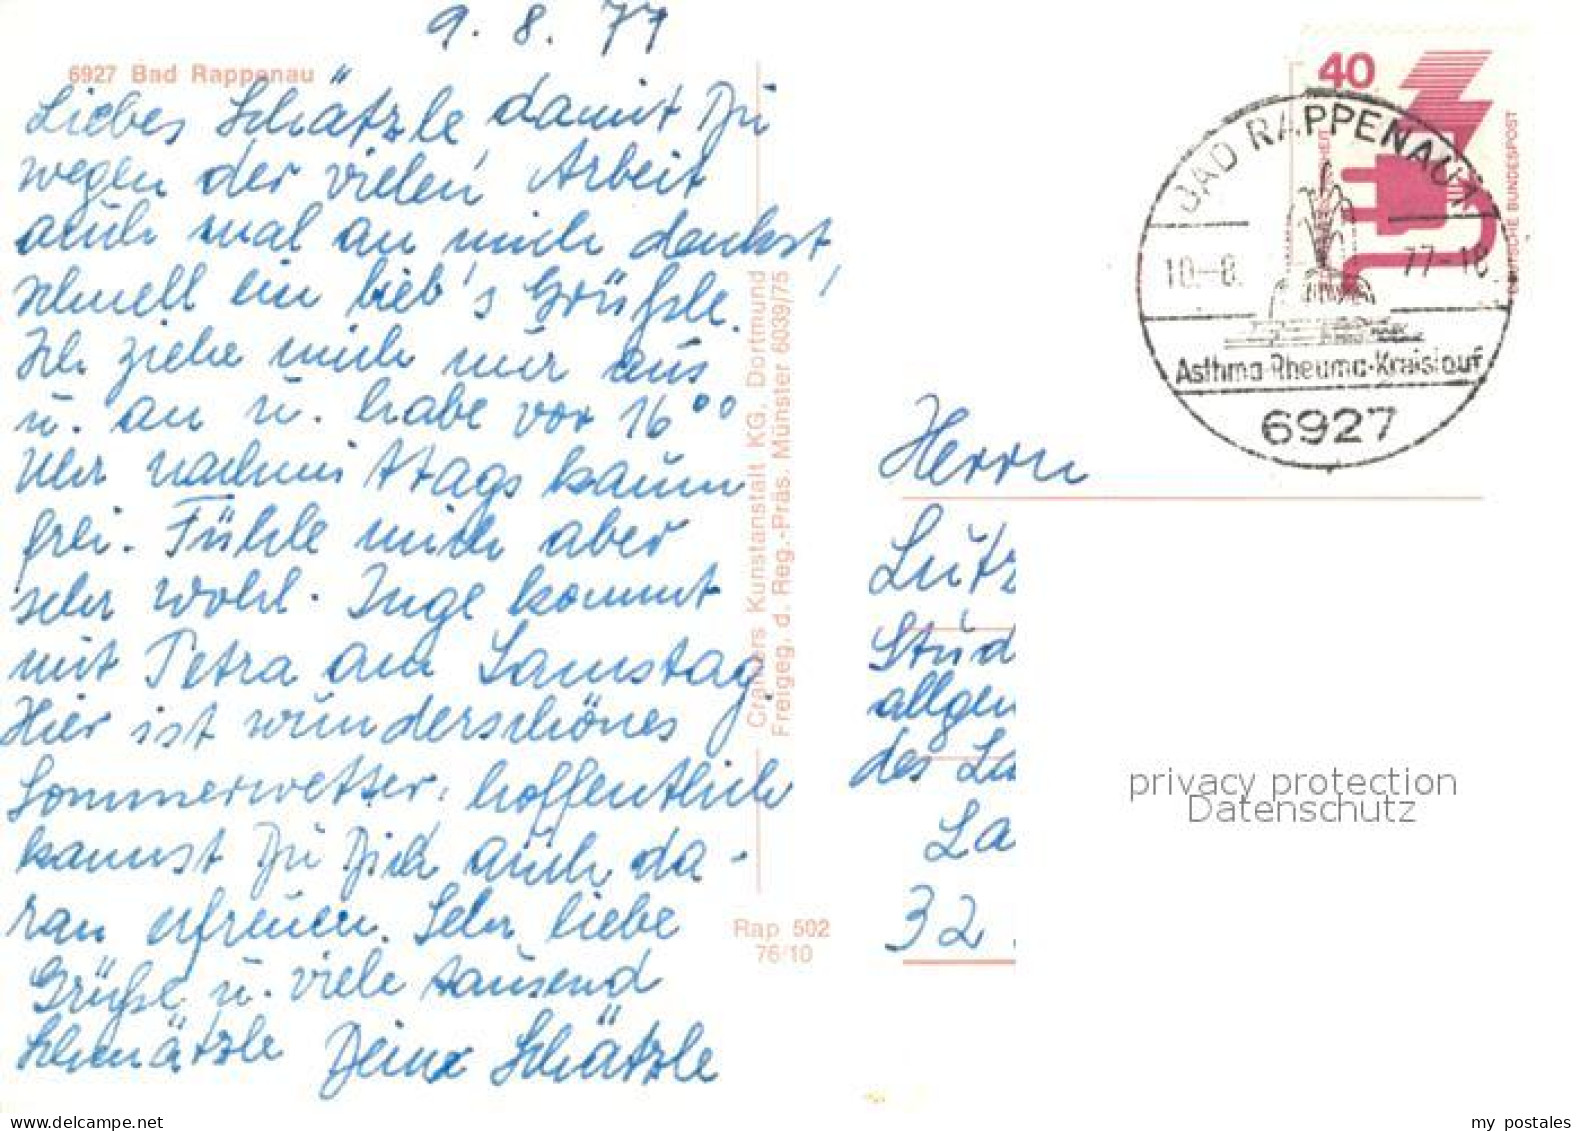 9. 8. 77
6927 Bad Rappenau
Liebes Schätzle damit Du
wegen der vielen Arbeit
auch mal an mich denkst,
schnell ein lieb's Grüßle!
Ich ziehe mich nur aus
u. an u. habe vor 16⁰⁰
Uhr nachmittags kaum
frei. Fühle mich aber
sehr wohl. Inge kommt
mit Petra am Samstag.
Hier ist wunderschönes
Sommerwetter, hoffentlich
kannst Du Dich auch da-
ran erfreuen. Sehr liebe
Grüße u. viele tausend
Schmätzle Deine Schätzle
Cramers Kunstanstalt KG, Dortmund
Freigeg. d. Reg.-Präs. Münster 6039/75
Rap 502
76/10
40
DEUTSCHE BUNDESPOST
BAD RAPPENAU
10.-8. 77-18
Asthma-Rheuma-Kreislauf
6927
Herrn
Lutz
Stud
allgem
des La
La
32
privacy protection
Datenschutz
my postales